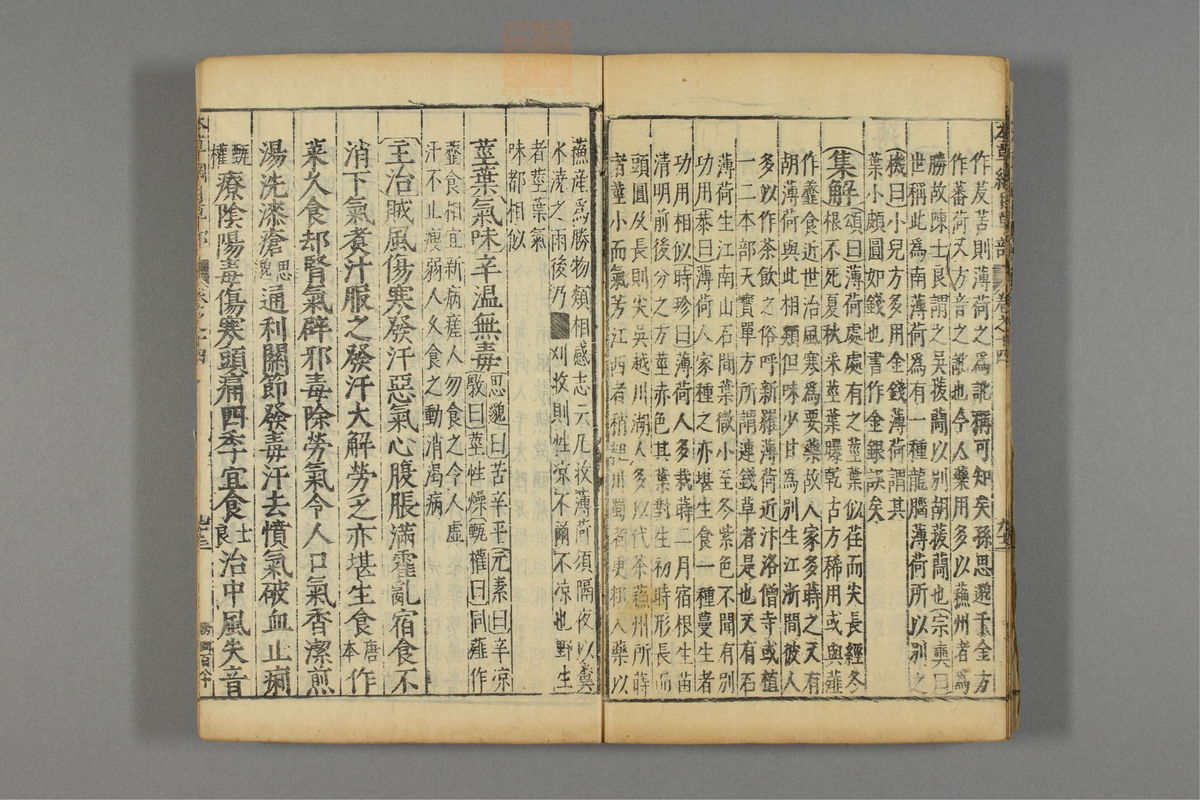 作茇𦬇則薄荷之爲訛稱可知矣孫思邈千金方
作蕃荷又方音之訛也今人藥用多以蘓州者爲
勝故陳士良謂之吳菝𦽆以别胡菝𦽆也宗奭曰
世稱此爲南薄荷爲有一種龍腦薄荷所以别之
機曰小兒方多用金錢薄荷謂其
葉小頗圓如錢也書作金銀誤矣
集解頌曰薄荷處處有之莖葉似荏而尖長經冬
根不死夏秋采莖葉曝乾古方稀用或與薤
作虀食近世治風寒爲要藥故人家多蒔之又有
胡薄荷與此相類但味少甘爲别生江浙間彼人
多以作茶飲之俗呼新羅薄荷近汴洛僧寺或植
一二本部天寶單方所謂連錢草者是也又有石
薄荷生江南山石間葉微小至冬紫色不聞有别
功用恭曰薄荷人家種之亦堪生食一種蔓生者
功用相似時珍曰薄荷人多栽蒔二月宿根生苗
清明前後分之方莖赤色其葉對生初時形長而
頭圓及長則尖吳越川湖人多以代茶蘓州所蒔
者莖小而氣芳江西者稍粗川蜀者更粗入藥以
蘓產爲勝物類相感志云凢收薄荷須隔夜以糞
水澆之雨後乃刈收則性涼不爾不涼也野生
者莖葉氣
味都相似
莖葉氣味辛温無毒思邈曰苦辛平元素曰辛凉
斆曰莖性燥甄權曰同薤作
虀食相宜新病瘥人勿食之令人虛
汗不止瘦弱人久食之動消渴病
主治賊風傷寒發汗惡氣心腹脹滿霍亂宿食不
消下氣煮汁服之發汗大解勞乏亦堪生食唐本作
菜久食却腎氣辟邪毒除勞氣令人口氣香潔煎
湯洗漆瘡思邈通利關節發毒汗去憤氣破血止痢
甄權療陰陽毒傷寒頭痛四季宜食士良治中風失音